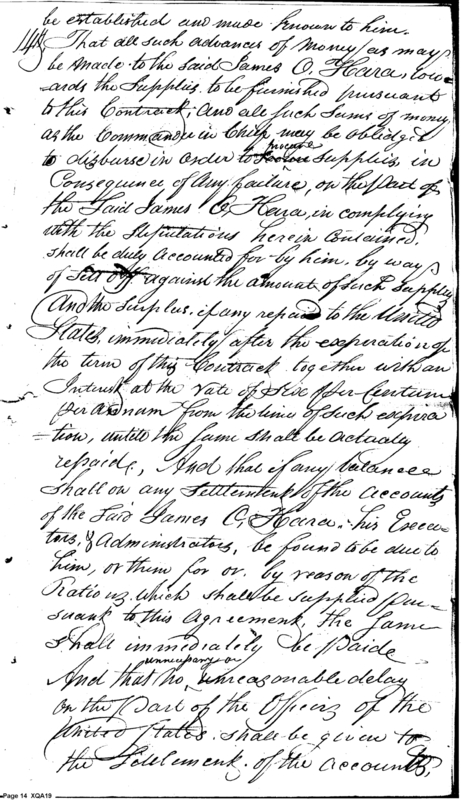 be established and made known to him.
14th That all such advances of money, as may
be made to the said James O,Hara, tow-
ards the Supplies to be furnished pursuant
to this Contract; And all such Sums of money
as the Commander in Chief may be obliged
to disburse in order to procure supplies, in
Consequence of any failure, on the part of
the Said James O,Hara, in complying
with the Stipulations herein Contained,
shall be duly accounted for by him, by way
of Sett off against the amount of such Supplies
And the surplus, if any repaid to the United
States, immediately after the experation of
the term of this Contract together with an
Interest at the rate of Six per Centum
per annum from the time of such expira
=tion, untill the same shall be actualy
repaid, And that if any balance
shall on any Settlement of the accounts
of the Said James O,Hara, his Execu-
tors, & administrators, be found to be due to
him, or them for or by reason of the
Rations which shall be supplied pur-
suant to this agreement, the same
shall immediately be paid
And that no, unnecessary or unreasonable delay
on the part of the Officers of the
United States shall be given to
the Settlement of the accounts,
Page 14 XQA19